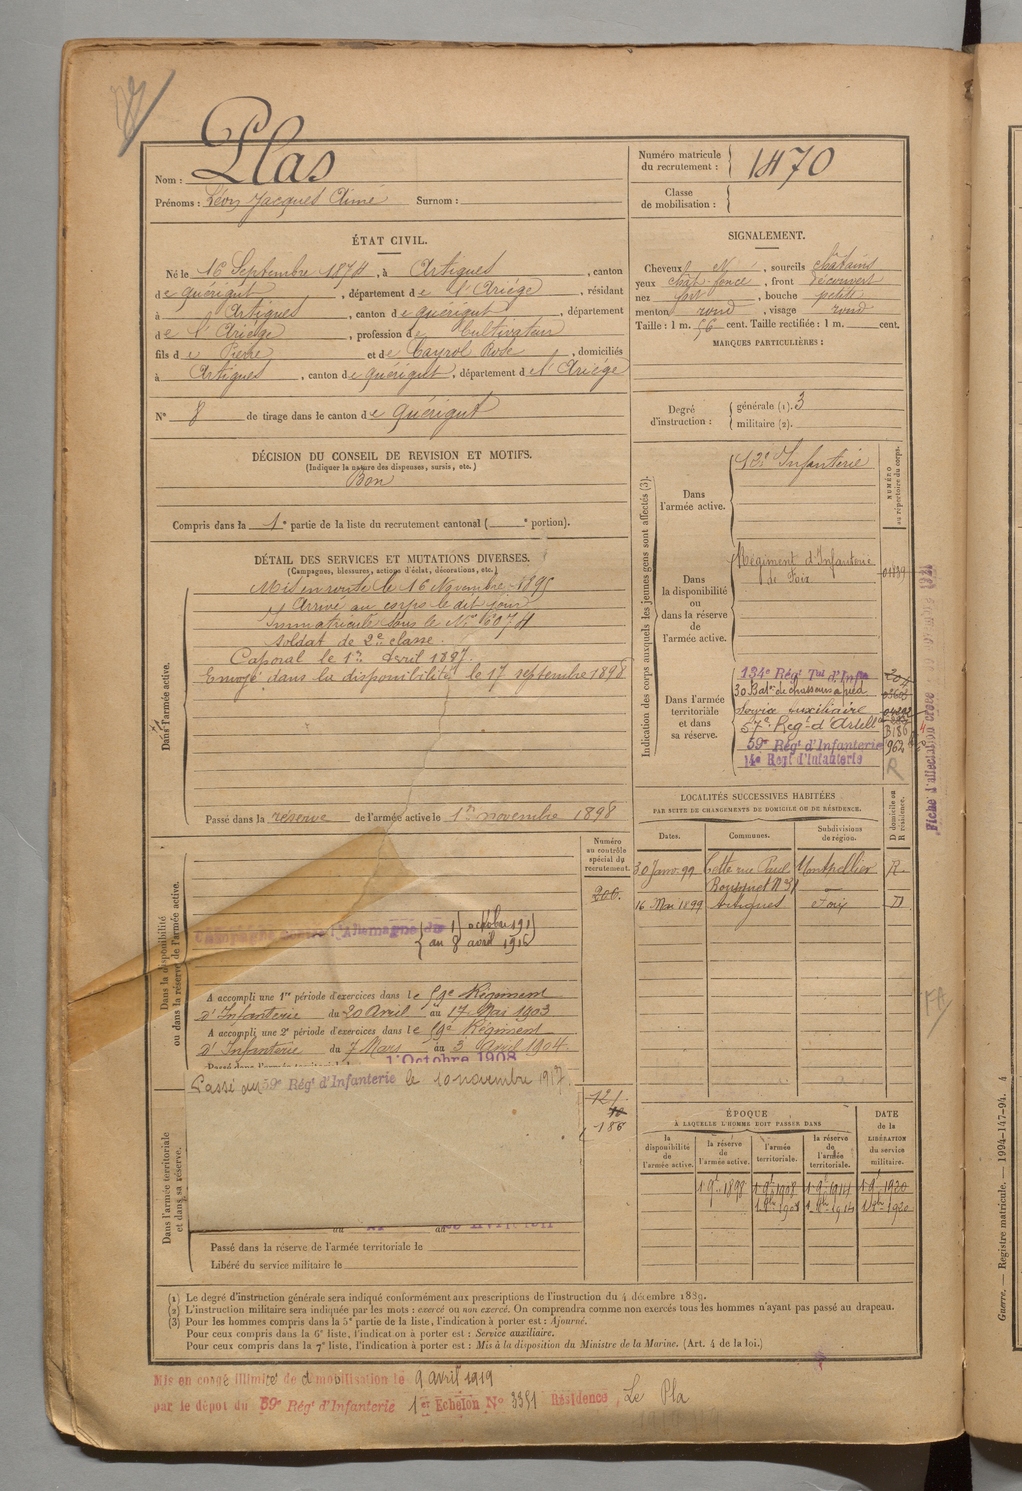 Nom : Plas
Prénoms : Léon Jacques Aimé Surnom :
Numéro matricule du recrutement : 1470
Classe de mobilisation :
ÉTAT CIVIL.
Né le 16 Septembre 1874, à Artigues, canton
de Quérigut, département de l'Ariége, résidant
à Artigues, canton de Quérigut, département
de l'Ariége, profession de Cultivateur
fils de Pierre et de Cayrol Rose, domiciliés
à Artigues, canton de Quérigut, département de l'Ariége
N° 8 de tirage dans le canton de Quérigut
SIGNALEMENT.
Cheveux N, sourcils châtains
yeux chât. foncé, front découvert
nez fort, bouche petite
menton rond, visage rond
Taille : 1 m. 56 cent. Taille rectifiée : 1 m. cent.
MARQUES PARTICULIÈRES :
Degré d'instruction : générale (1). 3
militaire (2).
DÉCISION DU CONSEIL DE REVISION ET MOTIFS.
(Indiquer la nature des dispenses, sursis, etc.)
Bon
Compris dans la 1e partie de la liste du recrutement cantonal ( e portion).
DÉTAIL DES SERVICES ET MUTATIONS DIVERSES.
(Campagnes, blessures, actions d'éclat, décorations, etc.)
Dans l'armée active.
Mis en route le 16 Novembre 1895
Arrivé au corps le dit jour
Immatriculé sous le N° 6074
soldat de 2e classe.
Caporal le 1er Avril 1897.
Envoyé dans la disponibilité le 17 septembre 1898
Passé dans la réserve de l'armée active le 1er novembre 1898
Indication des corps auxquels les jeunes gens sont affectés (3).
NUMÉRO au répertoire du corps.
Dans l'armée active.
Infanterie
Dans la disponibilité ou dans la réserve de l'armée active.
Régiment d'Infanterie
de Foix
Dans l'armée territoriale et dans sa réserve.
134e Régt Tal d'Infie
30 Baton de chasseurs à pied
Service auxiliaire
57e Regt d'Artill
59e Régt d'Infanterie
14e Regt d'Infanterie
R
Fiche d'affectation créée
LOCALITÉS SUCCESSIVES HABITÉES
PAR SUITE DE CHANGEMENTS DE DOMICILE OU DE RÉSIDENCE.
D domicile ou R résidence.
Dates. Communes. Subdivisions de région.
30 Janv. 99 Cette rue Paul Montpellier R.
16 Mai 1899 Artigues Foix D
Numéro au contrôle spécial du recrutement.
200.
Dans la disponibilité ou dans la réserve de l'armée active.
Campagne contre l'Allemagne du
au 8 avril
A accompli une 1re période d'exercices dans le 59e Régiment
d'Infanterie du 20 Avril au 17 Mai 1903
A accompli une 2e période d'exercices dans le 59e Régiment
d'Infanterie du 7 Mars au 3 Avril 1904.
1 Octobre 1908
Passé au 59e Régt d'Infanterie le 10 novembre 1917.
186
Dans l'armée territoriale et dans sa réserve.
Passé dans la réserve de l'armée territoriale le
Libéré du service militaire le
ÉPOQUE
À LAQUELLE L'HOMME DOIT PASSER DANS
la disponibilité de l'armée active. la réserve de l'armée active. l'armée territoriale. la réserve de l'armée territoriale.
DATE de la LIBÉRATION du service militaire.
1 9bre 1898 1 9bre 1908 1 9bre 1914 1 9bre 1920
(1) Le degré d'instruction générale sera indiqué conformément aux prescriptions de l'instruction du 4 décembre 1889.
(2) L'instruction militaire sera indiquée par les mots : exercé ou non exercé. On comprendra comme non exercés tous les hommes n'ayant pas passé au drapeau.
(3) Pour les hommes compris dans la 5e partie de la liste, l'indication à porter est : Ajourné.
Pour ceux compris dans la 6e liste, l'indication à porter est : Service auxiliaire.
Pour ceux compris dans la 7e liste, l'indication à porter est : Mis à la disposition du Ministre de la Marine. (Art. 4 de la loi.)
Mis en congé illimité de démobilisation le 9 avril 1919
par le dépot du 59e Régt d'Infanterie 1er Echelon N° 3351 Résidence, Le Pla
Guerre. — Registre matricule. — 1994-147-94. 4